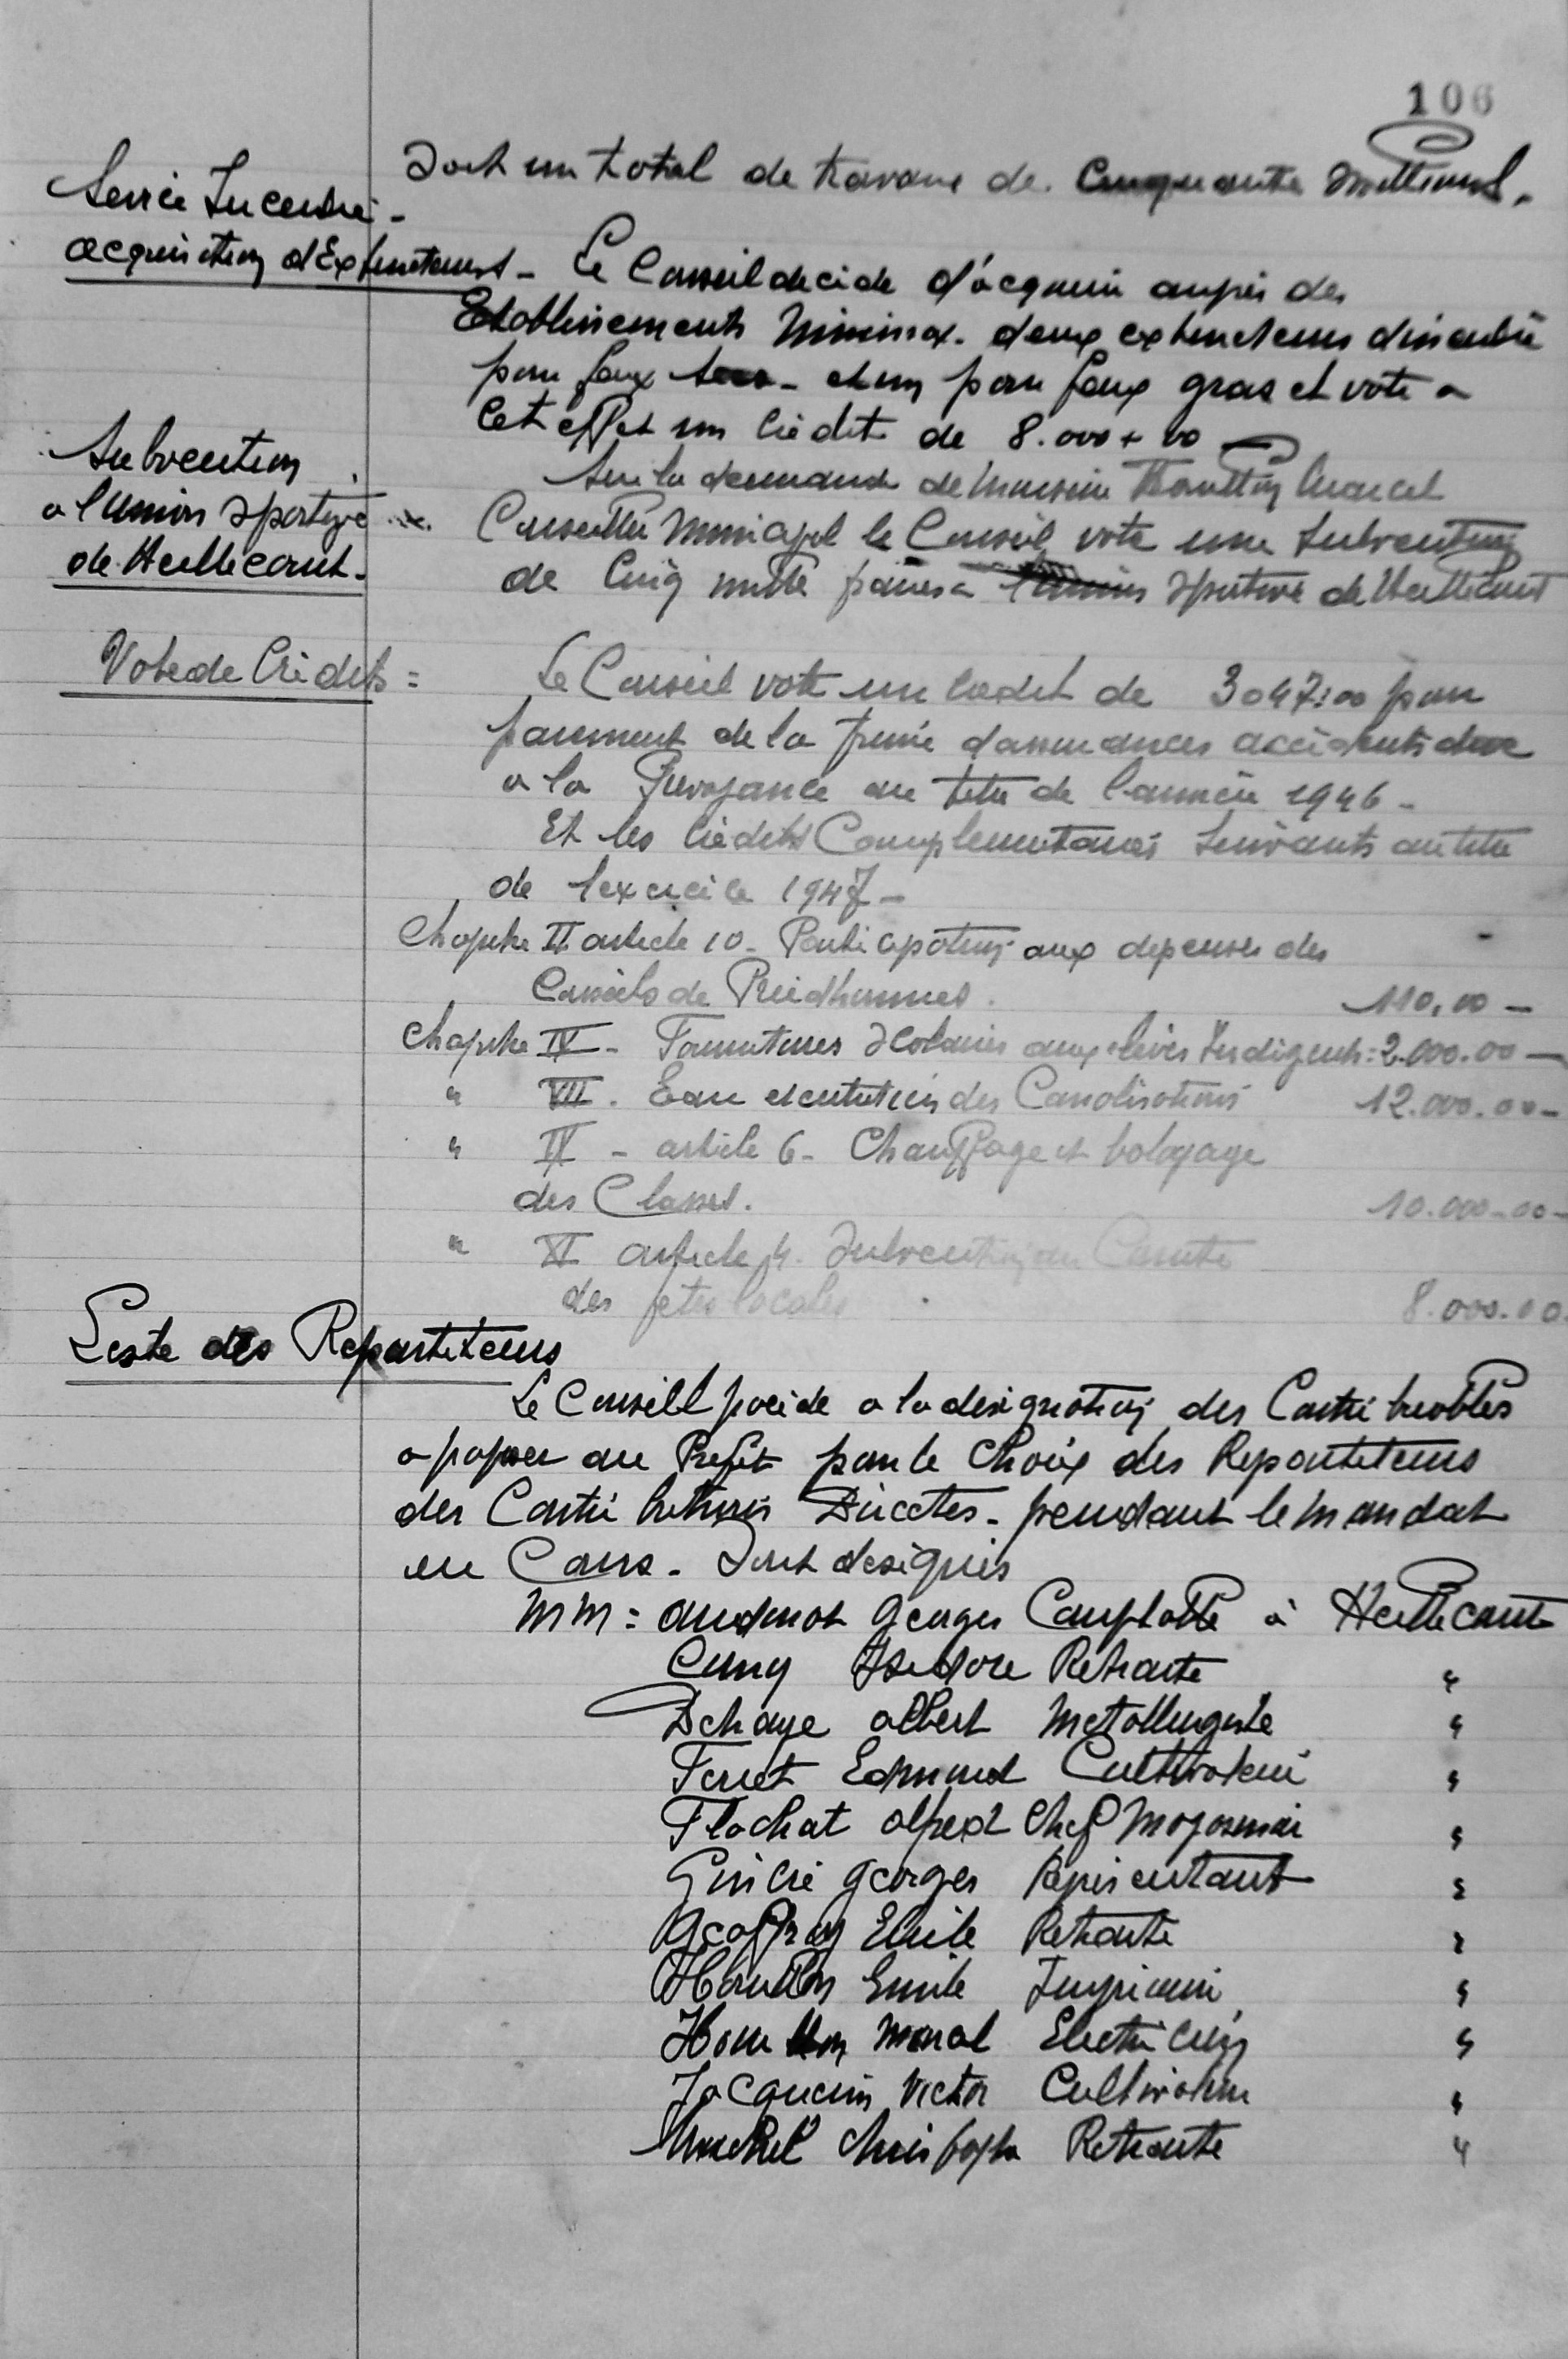 106
Soit un total de travaux de Cinquante Millions.
Service Incendie -
acquisition d'Extincteurs - Le Conseil decide d'acquerir aupres des
Etablissements Minimax. deux extincteurs d'incendie
pour feux secs - et un pour feux gras et vote a
cet effet un Crédit de 8.000 + 00
Subvention
a l'Union Sportive
de Heillecourt.
Sur la demande de Monsieur Houillon Marcel
Conseiller Municipal le Conseil vote une Subvention
de Cinq mille francs a l'Union Sportive de Heillecourt
Vote de Crédits =
Le Conseil vote un Credit de 3047:00 pour
paiement de la prime d'assurances accidents due
a la Prevoyance au titre de l'année 1946 -
Et les Crédits Complementaires suivants au titre
de l'exercice 1947 -
Chapitre II article 10 - Participation aux depenses des
Conseils de Prud'hommes. 110,00 -
Chapitre IV - Fournitures Scolaires aux élèves Indigents : 2.000.00 -
" VII. Eau et entretien des Canalisations 12.000.00 -
" IV - article 6 - Chauffage et balayage
des Classes. 10.000-00 -
" XI article 4. Subvention au Comité
des fetes locales 8.000.00.
Liste des Repartiteurs
Le Conseil procède a la designation des Contribuables
a proposer au Prefet pour le Choix des Repartiteurs
des Contributions Directes - pendant le mandat
en Cours - Sont designés
MM : Audinot Georges Comptable à Heillecourt
Cuny Isidore Retraité "
Dehaye Albert Metallurgiste "
Ferret Edmond Cultivateur "
Flachat Alfred Chef Magasinier "
Georges Representant "
Geoffroy Emile Retraité "
Houillon Emile Imprimeur "
Houillon Marcel Electricien "
Jacquemin Victor Cultivateur "
Michel Christophe Retraité "